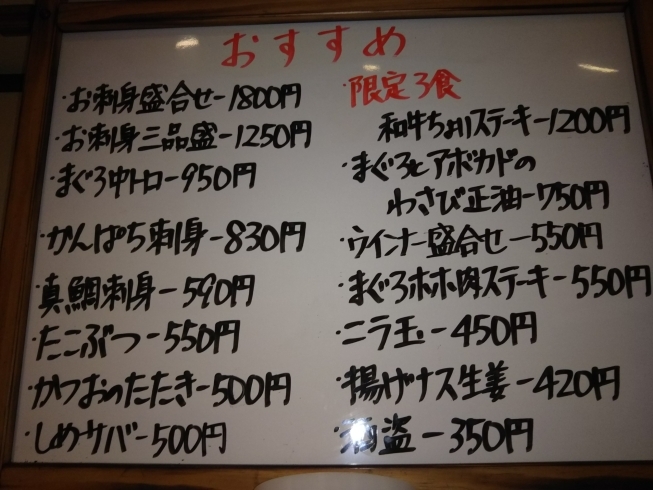 おすすめ
・お刺身盛合せー1800円
・お刺身三品盛ー1250円
・まぐろ中トロー950円
・かんぱち刺身ー830円
・真鯛刺身ー590円
・たこぶつー550円
・かつおのたたきー500円
・しめサバー500円
・限定3食
和牛ちょいステーキー1200円
・まぐろとアボカドの
わさび正油ー750円
・ウインナー盛合せー550円
・まぐろホホ肉ステーキー550円
・ニラ玉ー450円
・揚げナス生姜ー420円
・酒盗ー350円